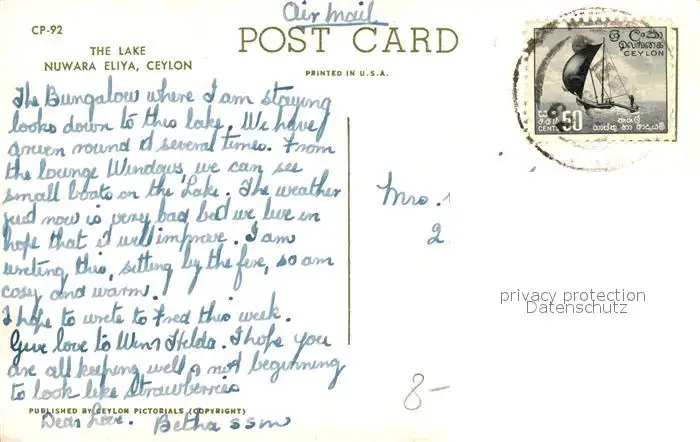 Air Mail
CP-92
THE LAKE
NUWARA ELIYA, CEYLON
POST CARD
PRINTED IN U.S.A.
The Bungalow where I am staying
looks down to this lake. We have
driven round it several times. From
the lounge Windows, we can see
small boats on the Lake. The weather
just now is very bad but we live in
hope that it will improve. I am
writing this, sitting by the fire, so am
cosy and warm.
I hope to write to Fred this week.
Give love to Win & Hilda. I hope you
are all keeping well & not beginning
to look like Strawberries
PUBLISHED BY CEYLON PICTORIALS (COPYRIGHT)
Dear Love. Betha SSM
ශ්‍රී ලංකා
இலங்கை
CEYLON
සත
சதம்
CENTS 50
Mrs.
2
privacy protection
Datenschutz
8-